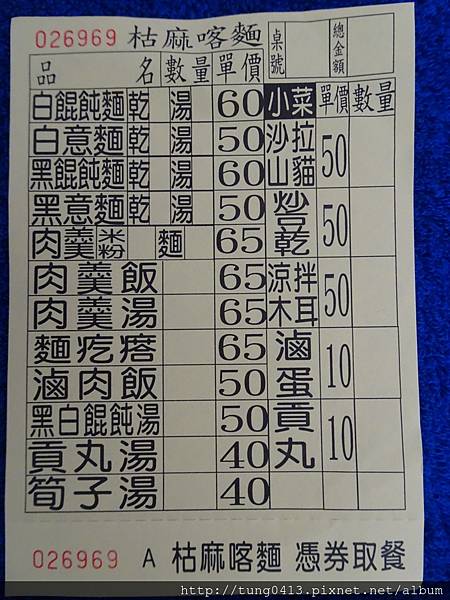 026969 枯麻喀麵 桌號 總金額
品名 數量 單價 小菜 單價 數量
白餛飩麵乾 湯 60 沙拉山貓 50
白意麵乾 湯 50
黑餛飩麵乾 湯 60
黑意麵乾 湯 50 乾 50
肉羹米粉 麵 65
肉羹飯 65 涼拌木耳 50
肉羹湯 65
麵疙瘩 65 滷蛋 10
滷肉飯 50
黑白餛飩湯 50 貢丸 10
貢丸湯 40
筍子湯 40
026969 A 枯麻喀麵 憑券取餐
http://tung0413.pixnet.net/album